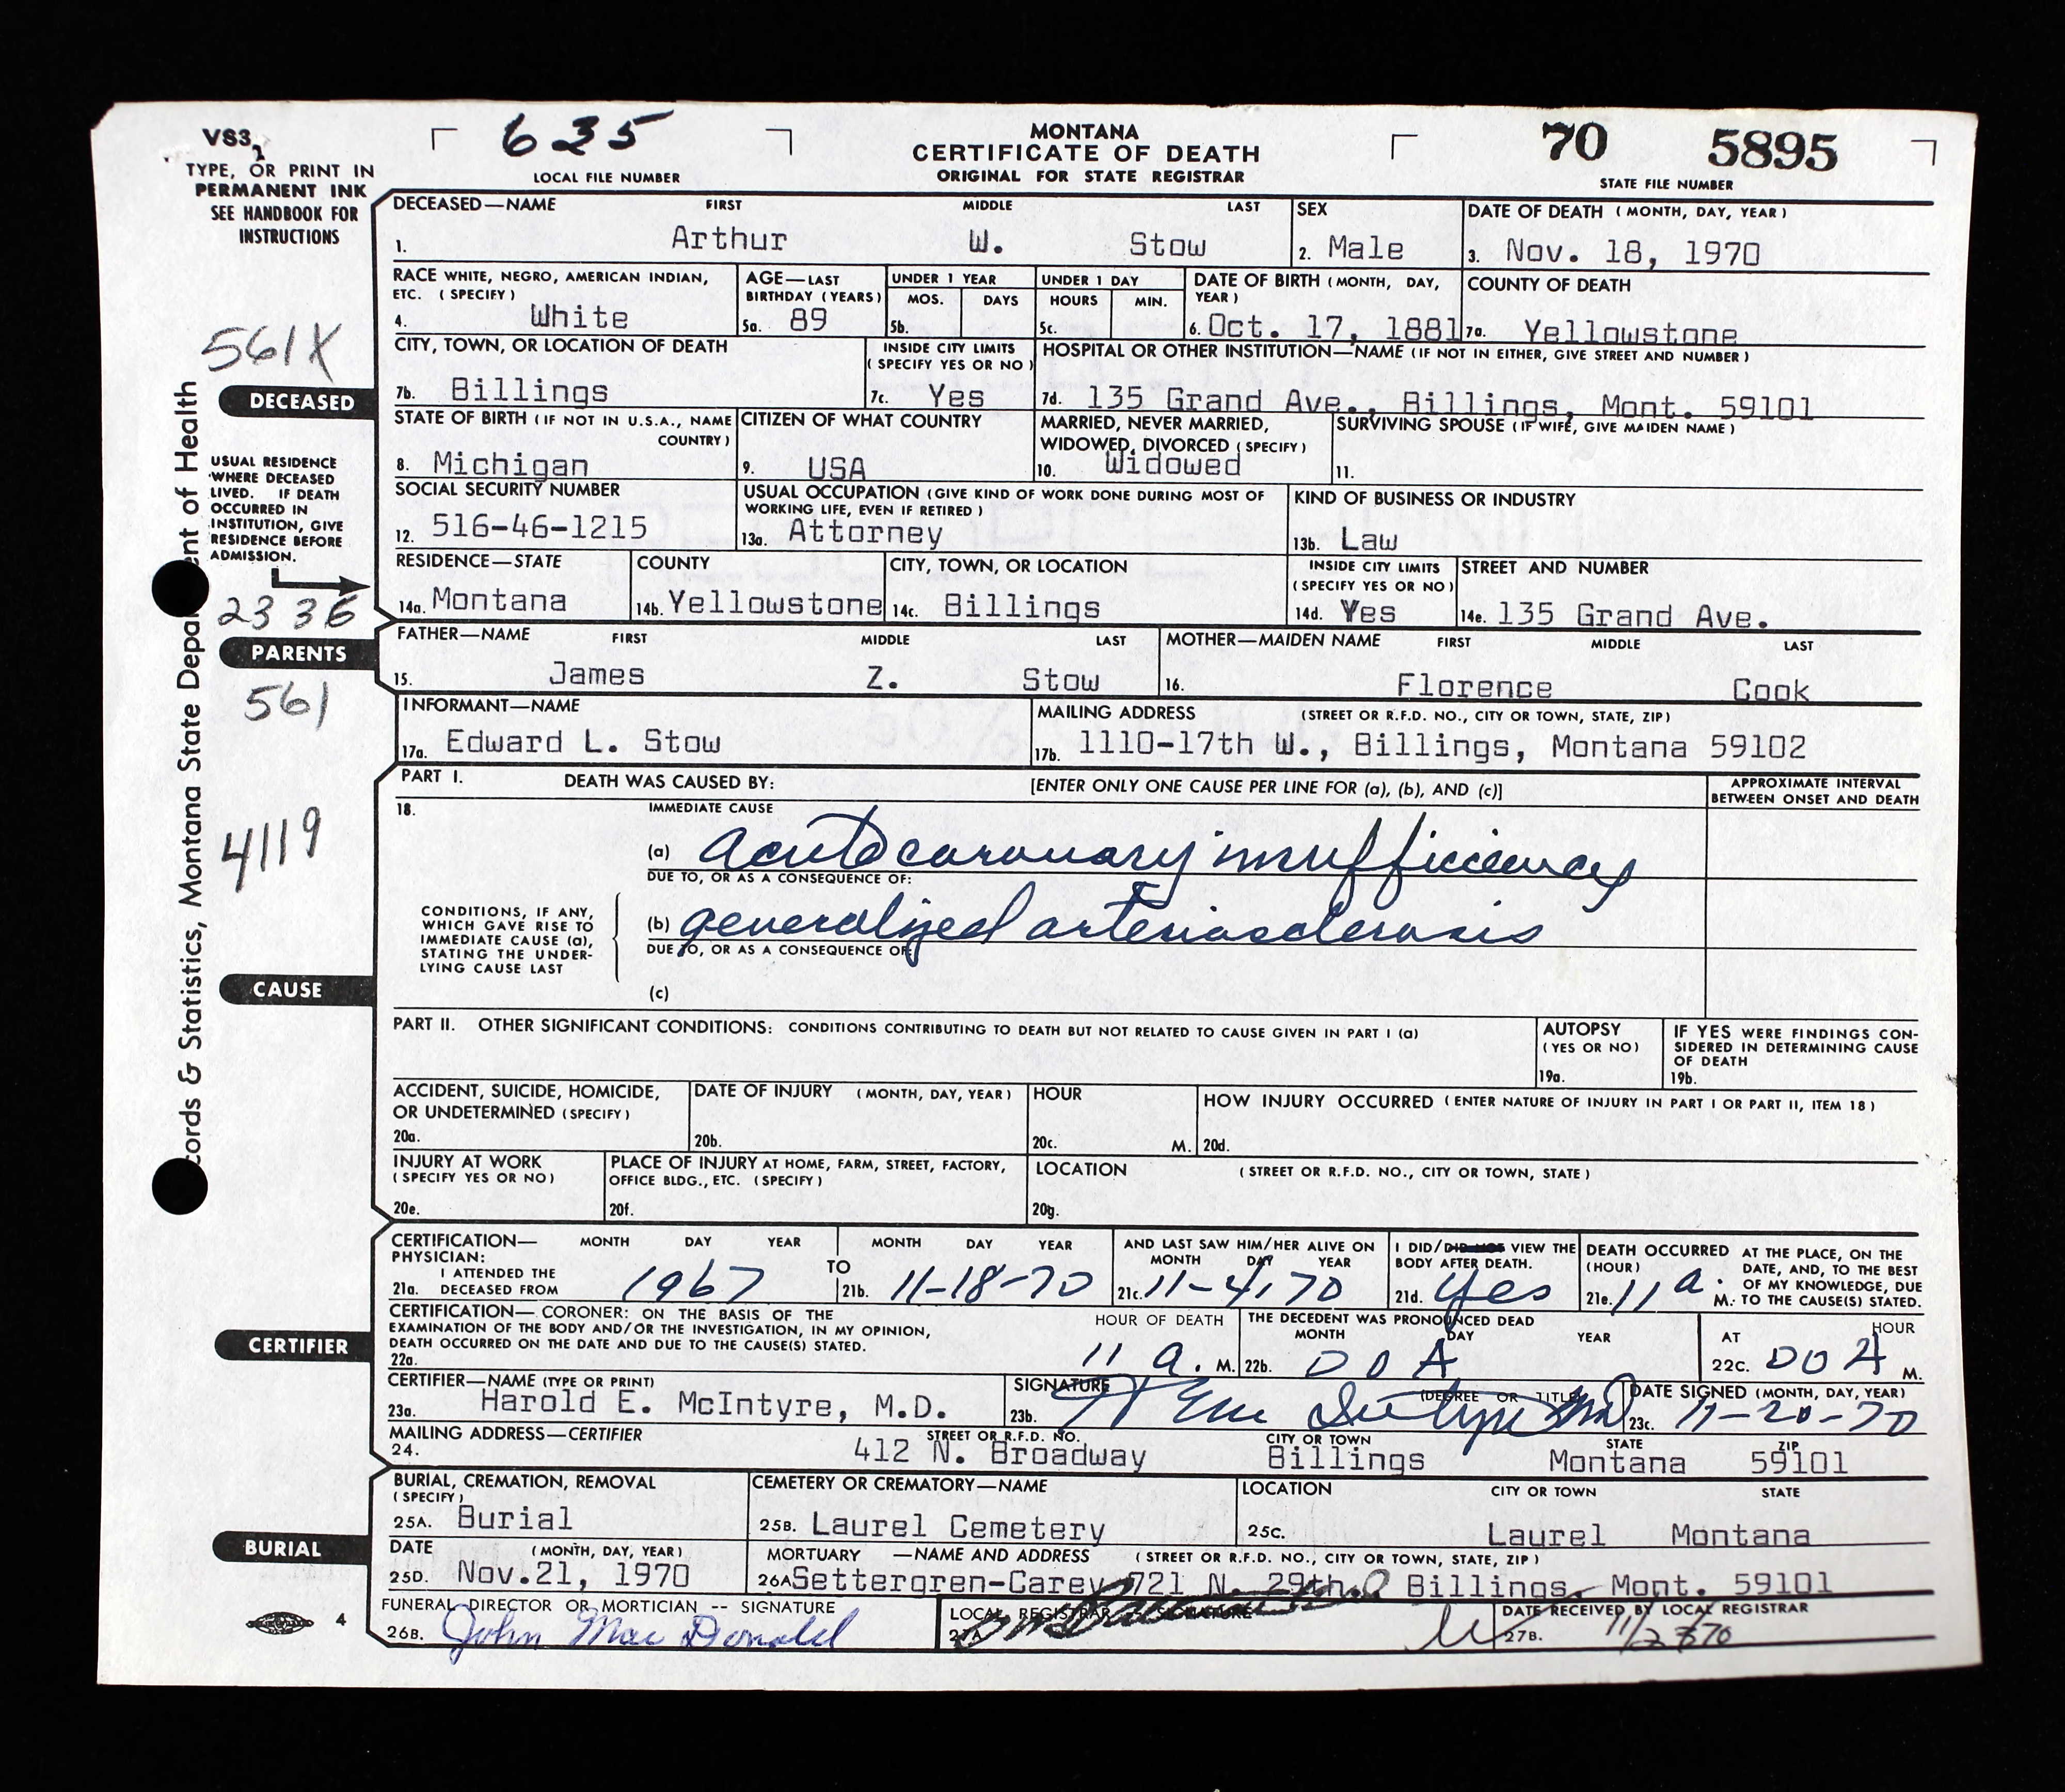 VS3
TYPE, OR PRINT IN
PERMANENT INK
SEE HANDBOOK FOR
INSTRUCTIONS
635
LOCAL FILE NUMBER
MONTANA
CERTIFICATE OF DEATH
ORIGINAL FOR STATE REGISTRAR
70 5895
STATE FILE NUMBER
DECEASED—NAME FIRST MIDDLE LAST
1. Arthur W. Stow
SEX
2. Male
DATE OF DEATH (MONTH, DAY, YEAR)
3. Nov. 18, 1970
RACE WHITE, NEGRO, AMERICAN INDIAN,
ETC. (SPECIFY)
4. White
AGE—LAST
BIRTHDAY (YEARS)
5a. 89
UNDER 1 YEAR
MOS. DAYS
5b.
UNDER 1 DAY
HOURS MIN.
5c.
DATE OF BIRTH (MONTH, DAY,
YEAR)
6. Oct. 17, 1881
COUNTY OF DEATH
7a. Yellowstone
561X
DECEASED
CITY, TOWN, OR LOCATION OF DEATH
7b. Billings
INSIDE CITY LIMITS
(SPECIFY YES OR NO)
7c. Yes
HOSPITAL OR OTHER INSTITUTION—NAME (IF NOT IN EITHER, GIVE STREET AND NUMBER)
7d. 135 Grand Ave., Billings, Mont. 59101
STATE OF BIRTH (IF NOT IN U.S.A., NAME
COUNTRY)
8. Michigan
CITIZEN OF WHAT COUNTRY
9. USA
MARRIED, NEVER MARRIED,
WIDOWED, DIVORCED (SPECIFY)
10. Widowed
SURVIVING SPOUSE (IF WIFE, GIVE MAIDEN NAME)
11.
USUAL RESIDENCE
WHERE DECEASED
LIVED. IF DEATH
OCCURRED IN
INSTITUTION, GIVE
RESIDENCE BEFORE
ADMISSION.
SOCIAL SECURITY NUMBER
12. 516-46-1215
USUAL OCCUPATION (GIVE KIND OF WORK DONE DURING MOST OF
WORKING LIFE, EVEN IF RETIRED)
13a. Attorney
KIND OF BUSINESS OR INDUSTRY
13b. Law
RESIDENCE—STATE
14a. Montana
COUNTY
14b. Yellowstone
CITY, TOWN, OR LOCATION
14c. Billings
INSIDE CITY LIMITS
(SPECIFY YES OR NO)
14d. Yes
STREET AND NUMBER
14e. 135 Grand Ave.
2336
PARENTS
561
FATHER—NAME FIRST MIDDLE LAST
15. James Z. Stow
MOTHER—MAIDEN NAME FIRST MIDDLE LAST
16. Florence Cook
INFORMANT—NAME
17a. Edward L. Stow
MAILING ADDRESS (STREET OR R.F.D. NO., CITY OR TOWN, STATE, ZIP)
17b. 1110-17th W., Billings, Montana 59102
cords & Statistics, Montana State Depa ent of Health
PART I. DEATH WAS CAUSED BY: [ENTER ONLY ONE CAUSE PER LINE FOR (a), (b), AND (c)]
APPROXIMATE INTERVAL
BETWEEN ONSET AND DEATH
18.
IMMEDIATE CAUSE
4119
(a) acute coronary insufficiency
DUE TO, OR AS A CONSEQUENCE OF:
CONDITIONS, IF ANY,
WHICH GAVE RISE TO
IMMEDIATE CAUSE (a),
STATING THE UNDER-
LYING CAUSE LAST
(b) generalized arteriosclerosis
DUE TO, OR AS A CONSEQUENCE OF:
(c)
CAUSE
PART II. OTHER SIGNIFICANT CONDITIONS: CONDITIONS CONTRIBUTING TO DEATH BUT NOT RELATED TO CAUSE GIVEN IN PART I (a)
AUTOPSY
(YES OR NO)
19a.
IF YES WERE FINDINGS CON-
SIDERED IN DETERMINING CAUSE
OF DEATH
19b.
ACCIDENT, SUICIDE, HOMICIDE,
OR UNDETERMINED (SPECIFY)
20a.
DATE OF INJURY (MONTH, DAY, YEAR)
20b.
HOUR
20c. M.
HOW INJURY OCCURRED (ENTER NATURE OF INJURY IN PART I OR PART II, ITEM 18)
20d.
INJURY AT WORK
(SPECIFY YES OR NO)
20e.
PLACE OF INJURY AT HOME, FARM, STREET, FACTORY,
OFFICE BLDG., ETC. (SPECIFY)
20f.
LOCATION (STREET OR R.F.D. NO., CITY OR TOWN, STATE)
20g.
CERTIFICATION— MONTH DAY YEAR
PHYSICIAN:
I ATTENDED THE
21a. DECEASED FROM 1967
TO
MONTH DAY YEAR
21b. 11-18-70
AND LAST SAW HIM/HER ALIVE ON
MONTH DAY YEAR
21c. 11-4-70
I DID/DID NOT VIEW THE
BODY AFTER DEATH.
21d. Yes
DEATH OCCURRED
(HOUR)
21e. 11 a. M.
AT THE PLACE, ON THE
DATE, AND, TO THE BEST
OF MY KNOWLEDGE, DUE
TO THE CAUSE(S) STATED.
CERTIFIER
CERTIFICATION—CORONER: ON THE BASIS OF THE
EXAMINATION OF THE BODY AND/OR THE INVESTIGATION, IN MY OPINION,
DEATH OCCURRED ON THE DATE AND DUE TO THE CAUSE(S) STATED.
22a.
HOUR OF DEATH
11 a. M.
THE DECEDENT WAS PRONOUNCED DEAD
MONTH DAY YEAR
22b. DOA
HOUR
AT
22c. DOA M.
CERTIFIER—NAME (TYPE OR PRINT)
23a. Harold E. McIntyre, M.D.
SIGNATURE (DEGREE OR TITLE)
23b. H E McIntyre MD
DATE SIGNED (MONTH, DAY, YEAR)
23c. 11-20-70
MAILING ADDRESS—CERTIFIER STREET OR R.F.D. NO. CITY OR TOWN STATE ZIP
24. 412 N. Broadway Billings Montana 59101
BURIAL
BURIAL, CREMATION, REMOVAL
(SPECIFY)
25A. Burial
CEMETERY OR CREMATORY—NAME
25B. Laurel Cemetery
LOCATION CITY OR TOWN STATE
25C. Laurel Montana
DATE (MONTH, DAY, YEAR)
25D. Nov.21, 1970
MORTUARY —NAME AND ADDRESS (STREET OR R.F.D. NO., CITY OR TOWN, STATE, ZIP)
26A Settergren-Carey 721 N. 29th. Billings, Mont. 59101
4
FUNERAL DIRECTOR OR MORTICIAN -- SIGNATURE
26B. John MacDonald
LOCAL REGISTRAR SIGNATURE
27A
DATE RECEIVED BY LOCAL REGISTRAR
27B.